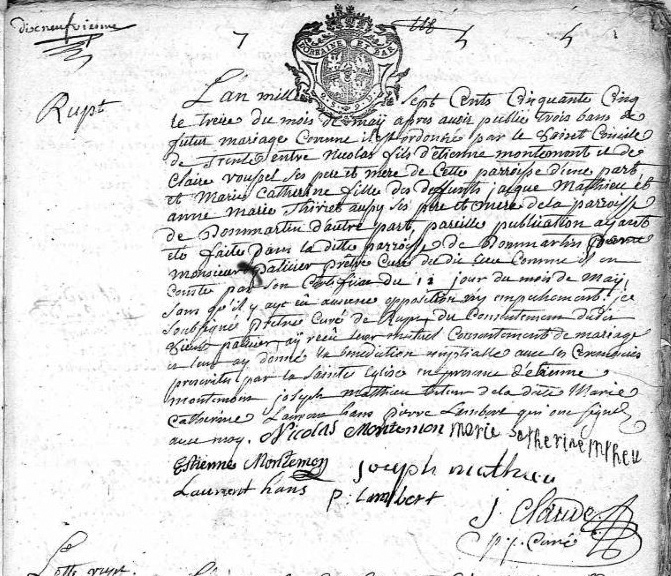 dixneufvienne
Rupt
LORRAINE ET BAR
L'an mille Sept Cents Cinquante Cinq
le treize du mois de may apres avoir publié trois bans de
futur mariage comme il est ordonné par le Saint Concile
de Trente entre Nicolas fils d'Etienne montemont et de
Claire voussel ses pere et mere de Cette parroisse d'une part
et Marie Catherine fille des deffunts jacque Mathieu et
anne Marie Thiriet aussy ses pere et mere de la parroisse
de Dommartin d'autre part, pareille publication ayant
eté faite dans la ditte parroisse de Dommartin
monsieur paticier prêtre Curé du dit lieu Comme il en
Conste par son Certificat du 12 jour du mois de May,
sans qu'il y ayt eü aucune opposition ny empechement. je
soubsigné prêtre Curé de Rupt du Consentement dudit
Sieur paticier ay reçu leur mutuel Consentement de mariage
et leur ay donné la benediction nuptialle avec les Ceremonies
prescrites par la Sainte Eglise en presence d'etienne
montemont joseph mathieu tuteur de la ditte Marie
Catherine Laurent hans pierre Lambert qui ont signé
avec moy. Nicolas Montemon marie Catherine Mtheu
Estienne Montemon joseph mathieu
Laurent hans p. lambert
J. Claude
p. Curé